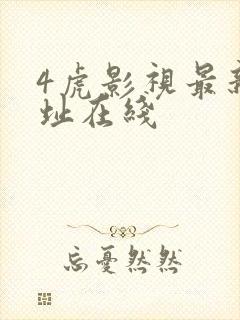 4虎影視最新
址在綫
忘憂然然